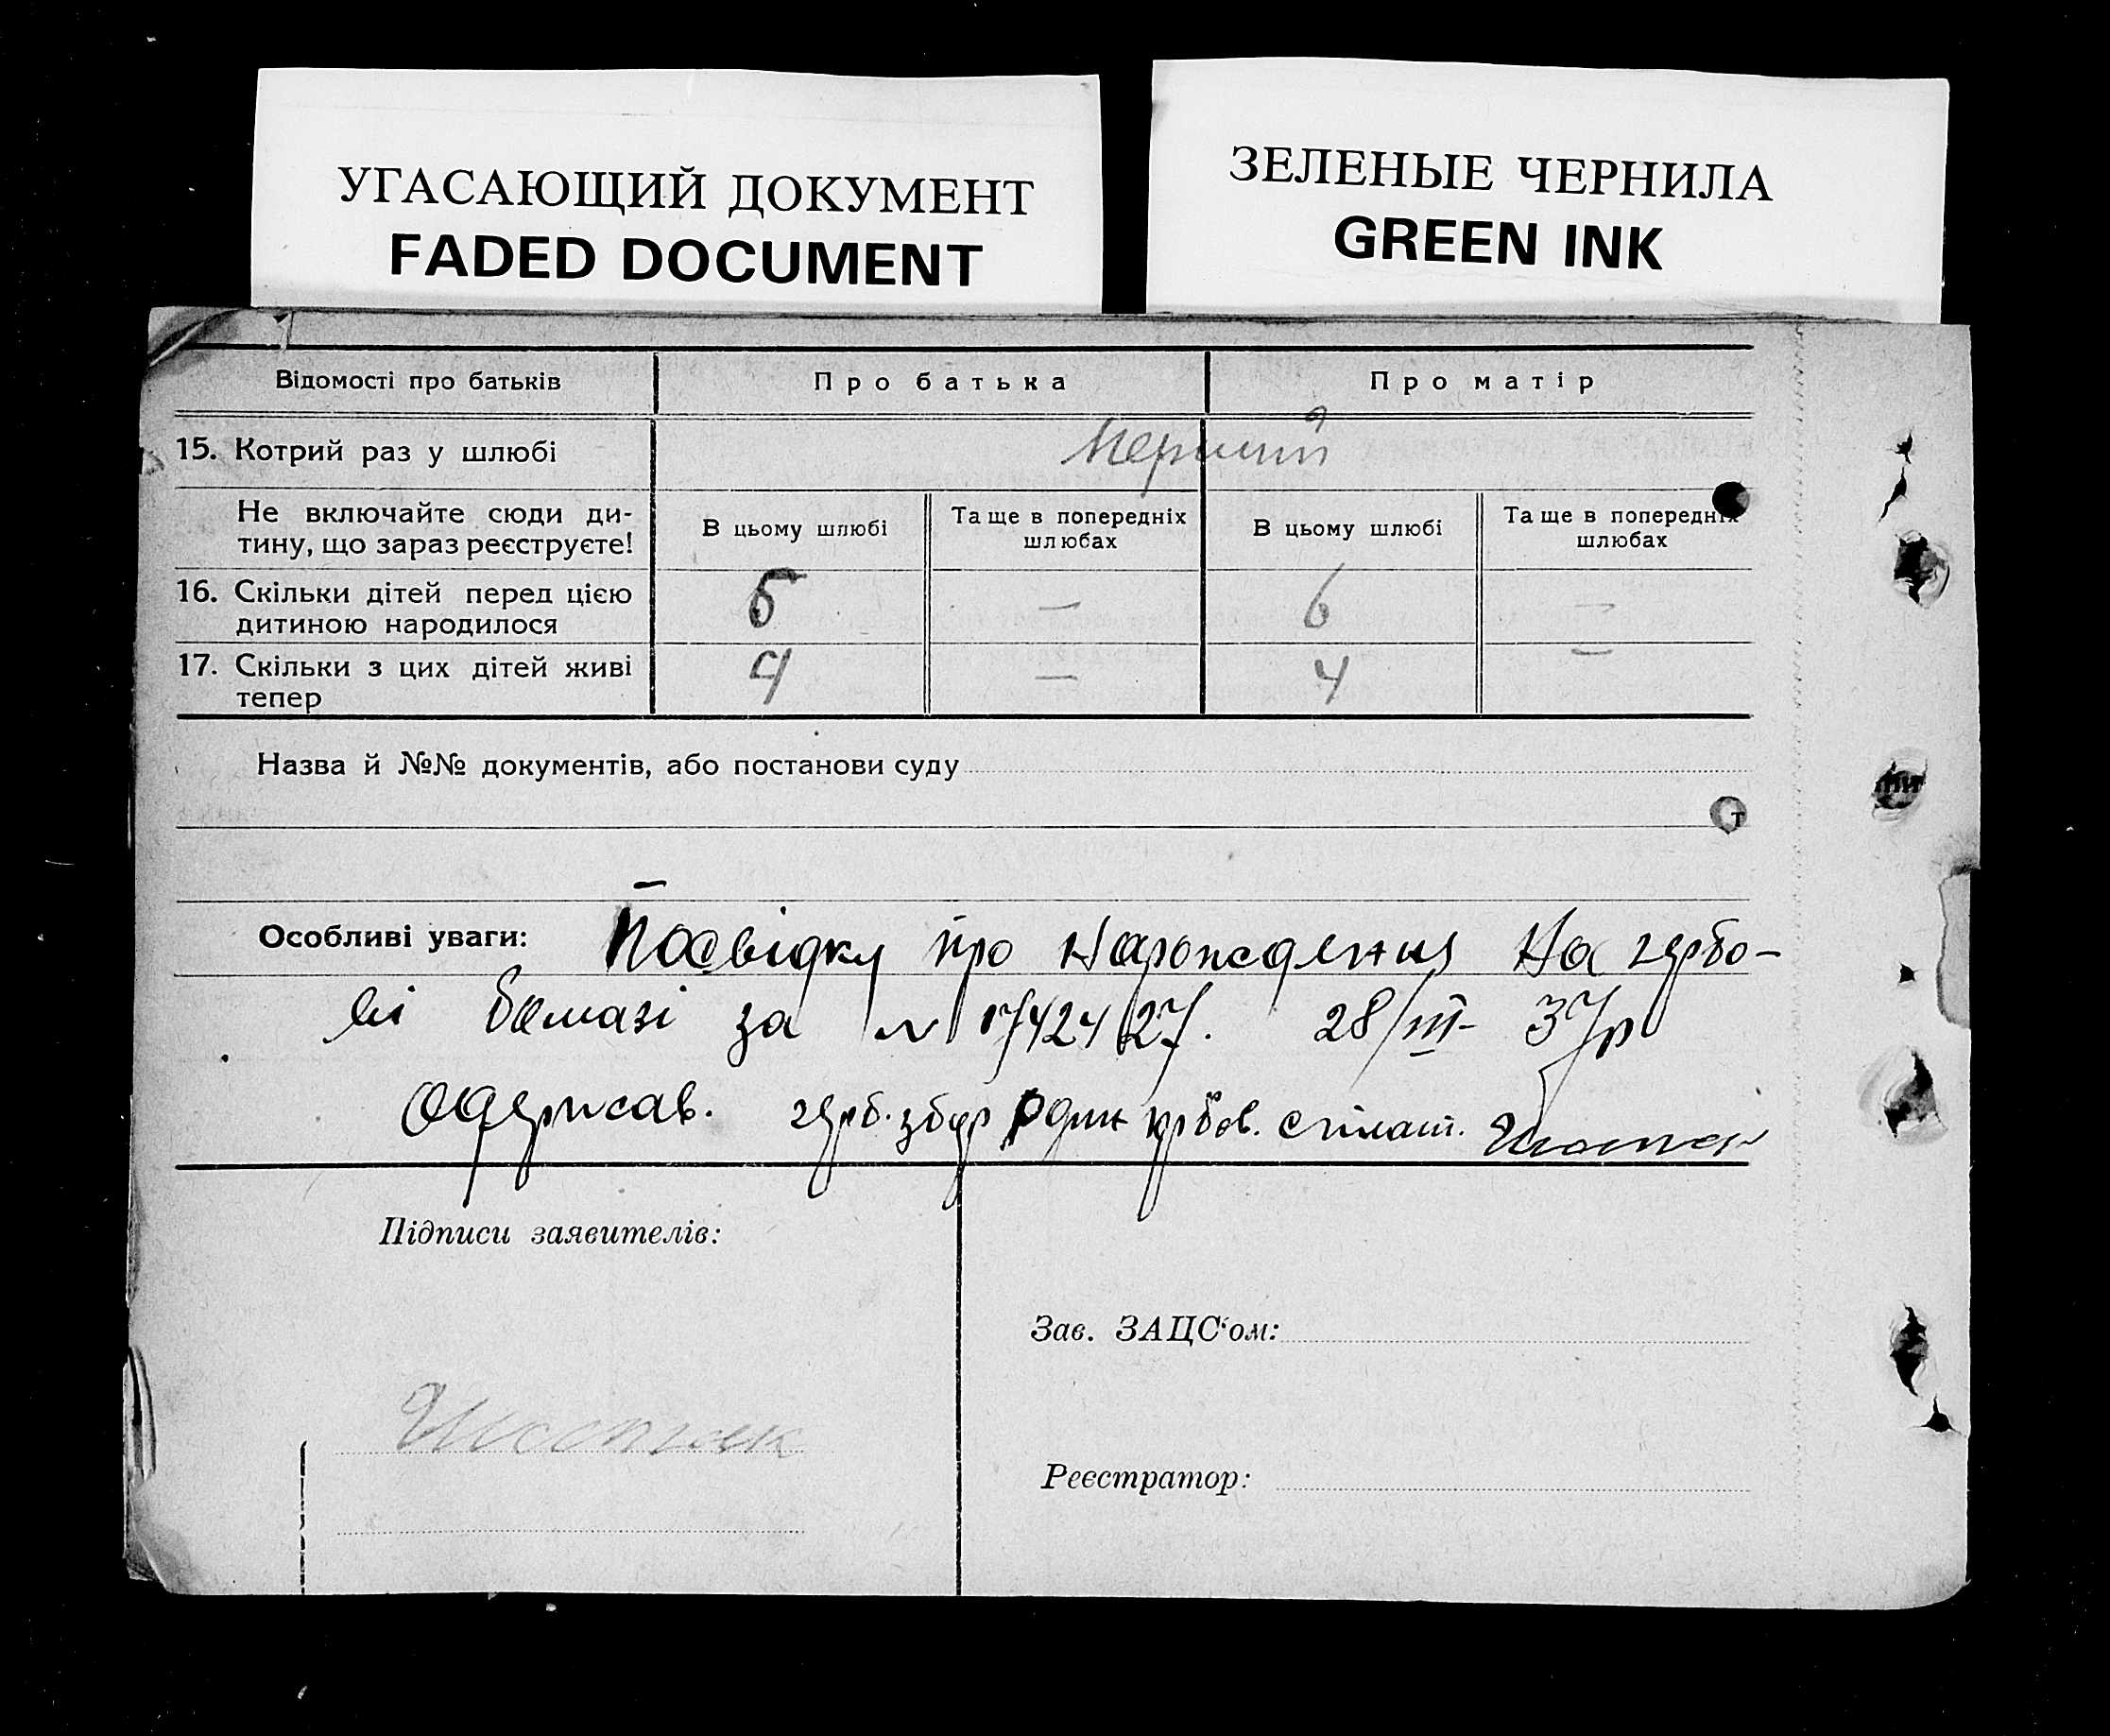 УГАСАЮЩИЙ ДОКУМЕНТ
FADED DOCUMENT
ЗЕЛЕНЫЕ ЧЕРНИЛА
GREEN INK
Відомості про батьків Про батька Про матір
15. Котрий раз у шлюбі Перший
Не включайте сюди ди-
тину, що зараз реєструєте!
В цьому шлюбі
Та ще в попередніх
шлюбах
В цьому шлюбі
Та ще в попередніх
шлюбах
16. Скільки дітей перед цією
дитиною народилося
5 — 6 —
17. Скільки з цих дітей живі
тепер
4 — 4 —
Назва й №№ документів, або постанови суду
Особливі уваги: Посвідку про нарождения на гербо-
ві бамазі за № 1742427. 28/III- 37р
Одержав. герб. збор один крбов. сплат.
Підписи заявителів:
Зав. ЗАЦС'ом:
Реєстратор: